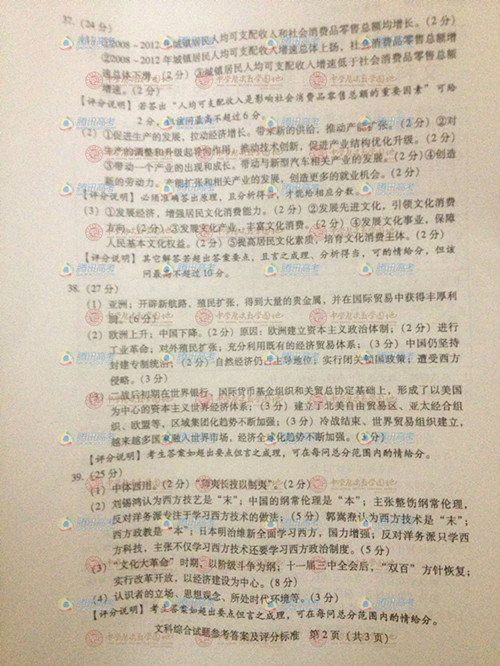 37. (24 分)
(1) ①2008－2012 年城镇居民人均可支配收入和社会消费品零售总额均增长。(2 分)
②2008－2012 年城镇居民人均可支配收入增速总体上扬，社会消费品零售总额增
速总体下滑。(2 分) ③城镇居民人均可支配收入增速低于社会消费品零售总额增速。(2 分)
【评分说明】若答出“人均可支配收入是影响社会消费品零售总额的重要因素”可给
2 分，但该问最高不超过 6 分。
(2) ①促进生产的发展，拉动经济增长。带来新的供给，推动产业扩张。(2 分) ②对
生产的调整和升级起导向作用，推动技术创新，促进产业结构优化升级。(2 分)
③带动一个产业的出现和成长。带动与新型汽车相关产业的发展。(2 分) ④创造
新的劳动力。产能扩张和相关产业的发展，创造更多的就业机会。(2 分)
【评分说明】必须准确答出原理，且分析得当，才能给相应分数。
(3) ①发展经济，增强居民文化消费能力。(2 分) ②发展先进文化，引领文化消费
方向。(2 分) ③发展文化产业，丰富文化消费。(2 分) ④发展文化事业，保障
人民基本文化权益。(2 分) ⑤提高居民文化素质，培育文化消费主体。(2 分)
【评分说明】其它解答若超出答案要点，且言之成理，分析得当，可酌情给分，但该
问最高不超过 10 分。
38. (27 分)
(1) 亚洲；开辟新航路，殖民扩张，得到大量的贵金属，并在国际贸易中获得丰厚利
润。(6 分)
(2) 欧洲上升；中国下降。(2 分) 原因：欧洲建立资本主义政治体制；(2 分) 进行
工业革命；对外殖民扩张；充分利用既有的经济贸易体系；(3 分) 中国仍坚持
封建专制统治；(2 分) 自然经济仍占主导地位；实行闭关锁国政策；遭受西方
侵略。(3 分)
(3) 二战后初期在世界银行、国际货币基金组织和关贸总协定基础上，形成了以美国
为中心的资本主义世界经济体系；(3 分) 建立了北美自由贸易区、亚太经合组
织、欧盟等，区域集团化趋势不断加强；(3 分) 冷战结束、世界贸易组织建立，
越来越多国家融入世界市场，经济全球化趋势不断加强。(3 分)
【评分说明】考生答案如超出要点但言之成理，可在每问总分范围内酌情给分。
39. (25 分)
(1) 中体西用。(2 分)“师夷长技以制夷”。(2 分)
(2) 刘锡鸿认为西方技艺是“末”；中国的纲常伦理是“本”；主张整饬纲常伦理，
反对洋务派专注于学习西方技术的做法；(5 分) 郭嵩焘认为西方技术是“末”；
西方政教是“本”；日本明治维新全面学习西方，国力增强；反对洋务派只学西
方科技，主张不仅学习西方技术还要学习西方政治制度。(5 分)
(3) “文化大革命”时期，以阶级斗争为纲；十一届三中全会后，“双百”方针恢复；
实行改革开放，以经济建设为中心。(8 分)
(4) 认识者的立场、思想观念、所处时代环境等。(3 分)
【评分说明】考生答案如超出要点但言之成理，可在每问总分范围内酌情给分。
文科综合试题参考答案及评分标准 第 2 页（共 3 页）
腾讯高考